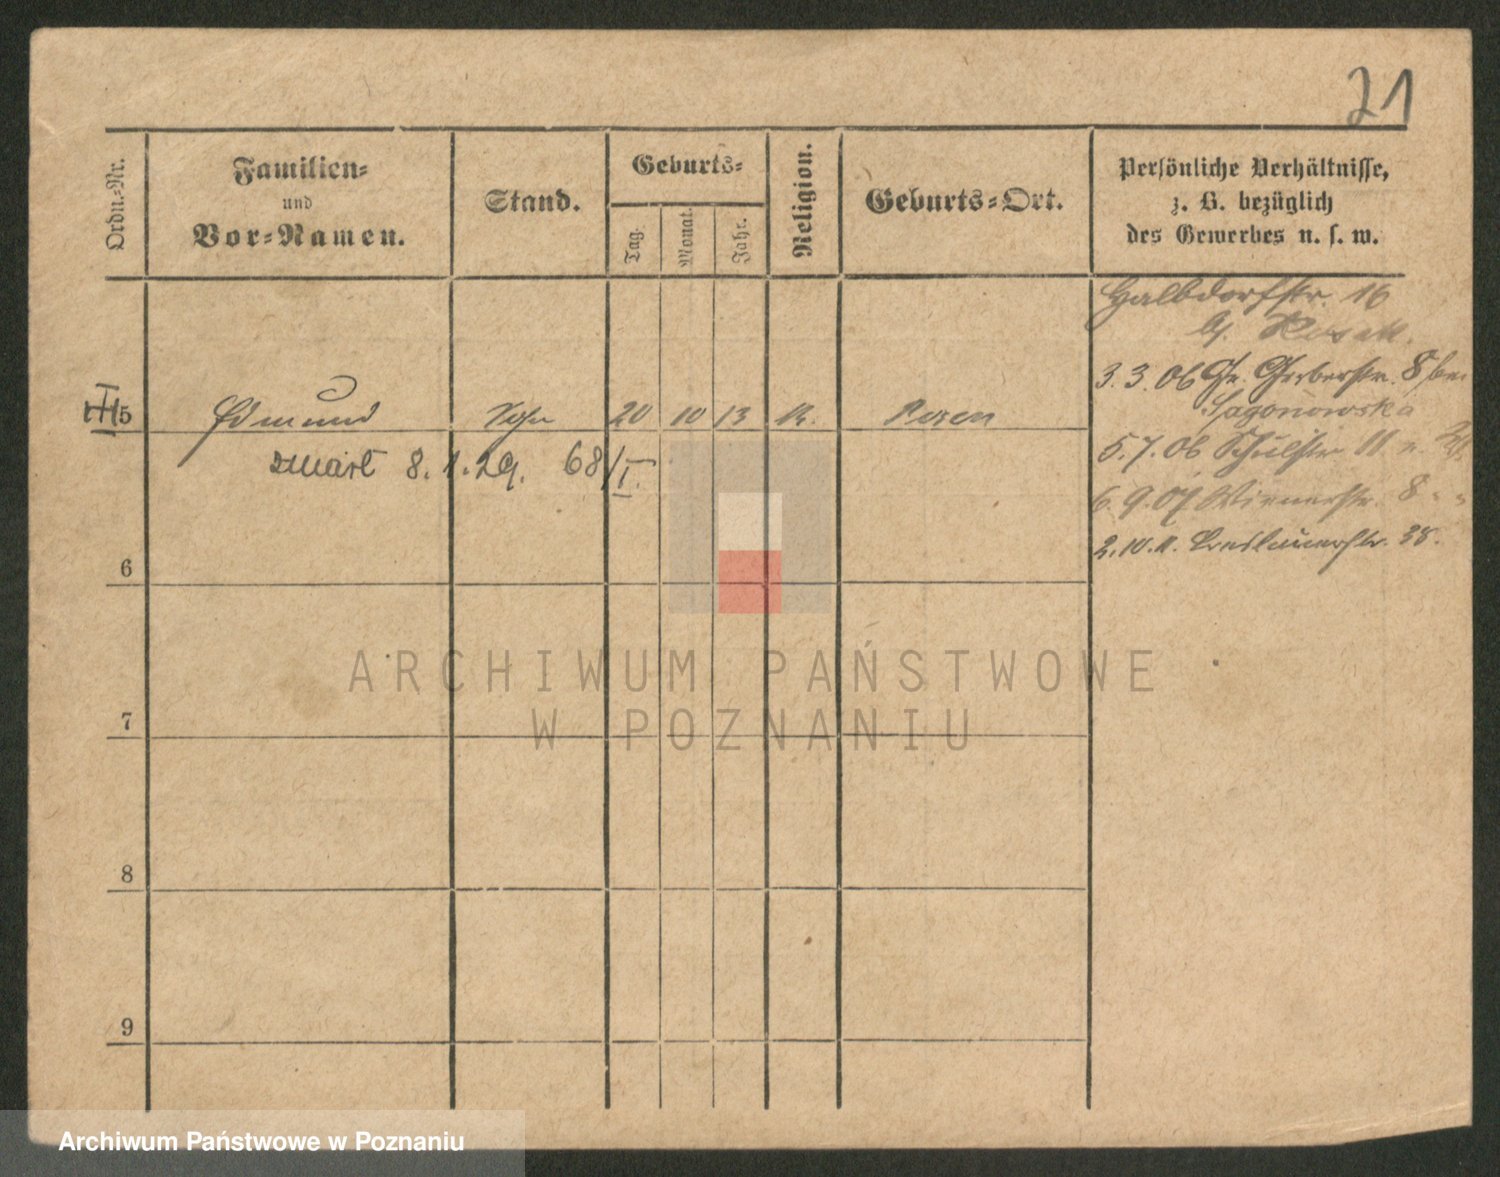 21
Ordn.-Nr.
Familien-
und
Vor-Namen.
Stand.
Geburts-
Tag.
Monat.
Jahr.
Religion.
Geburts-Ort.
Persönliche Verhältnisse,
z. B. bezüglich
des Gewerbes u. s. w.
Halbdorfstr. 16
3.3.06 Gr. Gerberstr. 8 bei
Sagonowska
5 Edmund Sohn 20 10 13 k. Posen
5.7.06 Schulstr. 11
zmarł 8.1.29. 68/I.
6.9.07 Wienerstr. 8 " "
2.10.11. Breslauerstr. 38.
6
7
8
9
ARCHIWUM PAŃSTWOWE
W POZNANIU
Archiwum Państwowe w Poznaniu